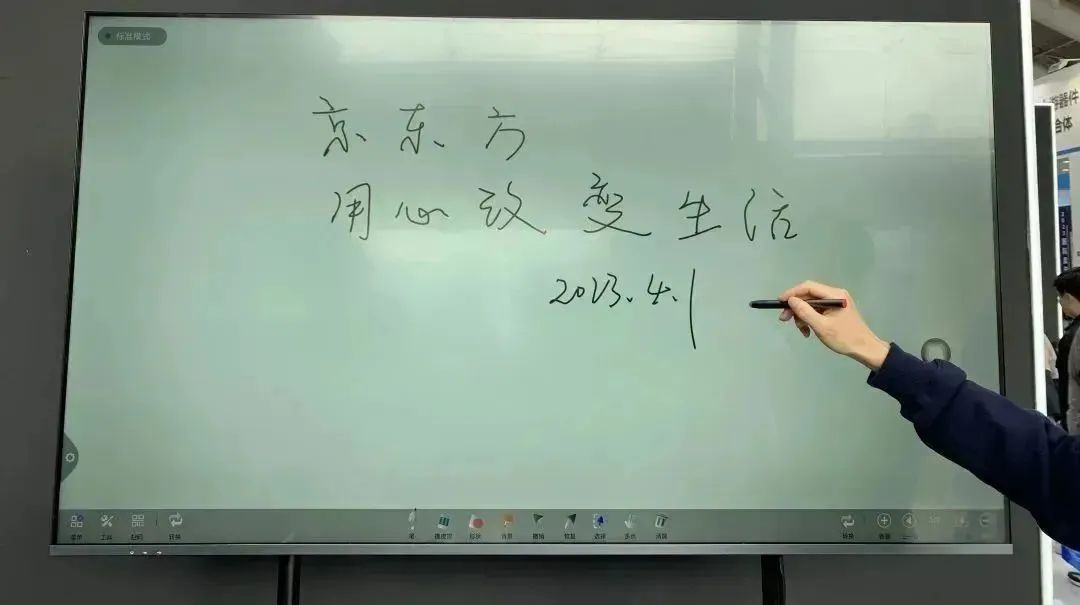 标准模式
京东方
用心改变生活
2023.4.1
菜单 工具 扫码 转换 笔 橡皮擦 形状 背景 撤销 恢复 选择 多点 清屏 转换 查看
器件
合体